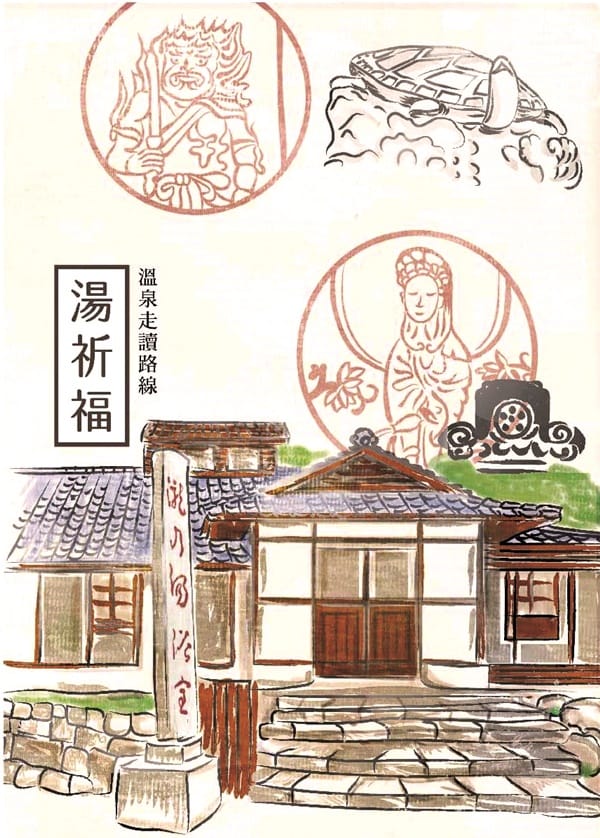 溫泉走讀路線
湯祈福
瀧乃湯浴室